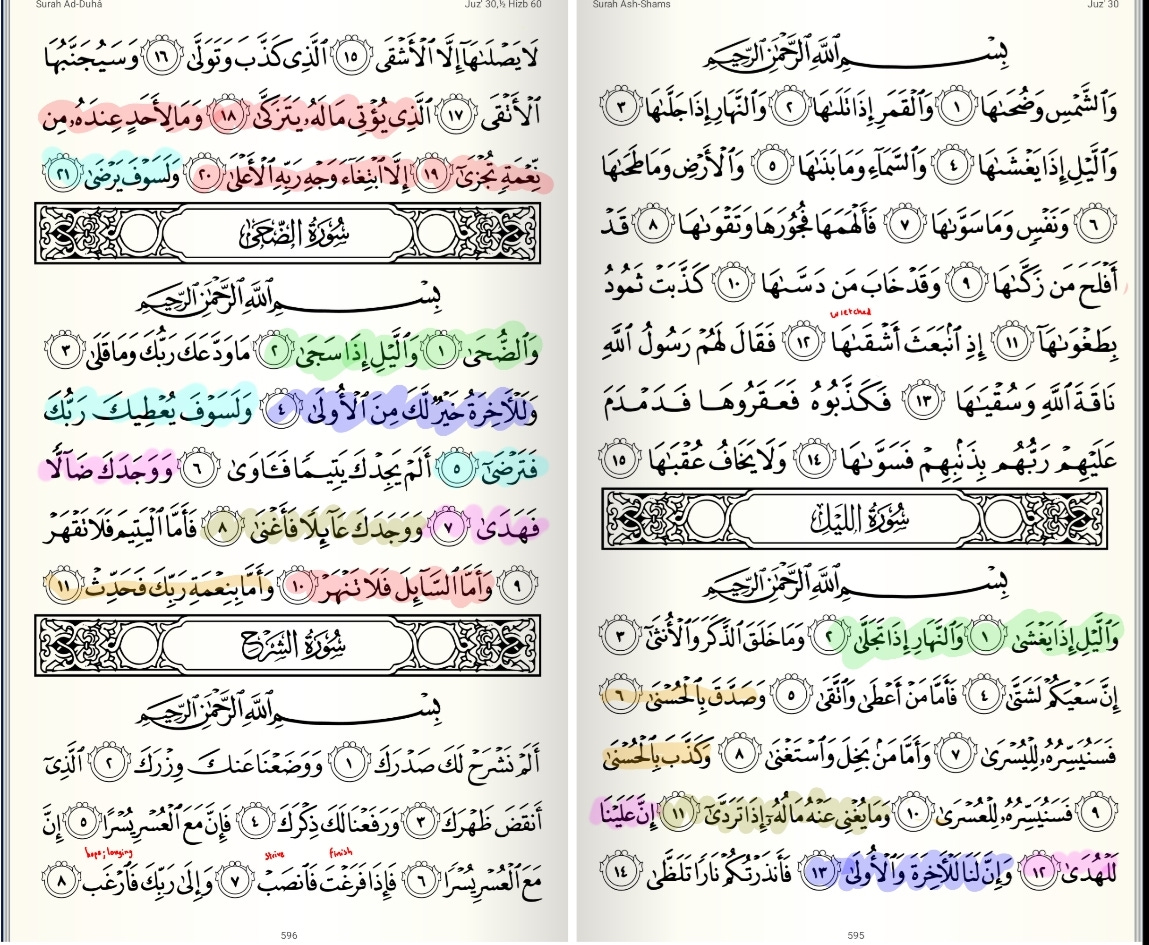 Surah Ash-Shams Juz' 30
بِسْمِ ٱللَّهِ ٱلرَّحْمَٰنِ ٱلرَّحِيمِ
وَٱلشَّمْسِ وَضُحَىٰهَا ١ وَٱلْقَمَرِ إِذَا تَلَىٰهَا ٢ وَٱلنَّهَارِ إِذَا جَلَّىٰهَا ٣
وَٱلَّيْلِ إِذَا يَغْشَىٰهَا ٤ وَٱلسَّمَآءِ وَمَا بَنَىٰهَا ٥ وَٱلْأَرْضِ وَمَا طَحَىٰهَا
٦ وَنَفْسٍ وَمَا سَوَّىٰهَا ٧ فَأَلْهَمَهَا فُجُورَهَا وَتَقْوَىٰهَا ٨ قَدْ
أَفْلَحَ مَن زَكَّىٰهَا ٩ وَقَدْ خَابَ مَن دَسَّىٰهَا ١٠ كَذَّبَتْ ثَمُودُ
wretched
بِطَغْوَىٰهَآ ١١ إِذِ ٱنۢبَعَثَ أَشْقَىٰهَا ١٢ فَقَالَ لَهُمْ رَسُولُ ٱللَّهِ
نَاقَةَ ٱللَّهِ وَسُقْيَٰهَا ١٣ فَكَذَّبُوهُ فَعَقَرُوهَا فَدَمْدَمَ
عَلَيْهِمْ رَبُّهُم بِذَنۢبِهِمْ فَسَوَّىٰهَا ١٤ وَلَا يَخَافُ عُقْبَٰهَا ١٥
سُورَةُ اللَّيْلِ
بِسْمِ ٱللَّهِ ٱلرَّحْمَٰنِ ٱلرَّحِيمِ
وَٱلَّيْلِ إِذَا يَغْشَىٰ ١ وَٱلنَّهَارِ إِذَا تَجَلَّىٰ ٢ وَمَا خَلَقَ ٱلذَّكَرَ وَٱلْأُنثَىٰٓ ٣
إِنَّ سَعْيَكُمْ لَشَتَّىٰ ٤ فَأَمَّا مَنْ أَعْطَىٰ وَٱتَّقَىٰ ٥ وَصَدَّقَ بِٱلْحُسْنَىٰ ٦
فَسَنُيَسِّرُهُۥ لِلْيُسْرَىٰ ٧ وَأَمَّا مَنۢ بَخِلَ وَٱسْتَغْنَىٰ ٨ وَكَذَّبَ بِٱلْحُسْنَىٰ
٩ فَسَنُيَسِّرُهُۥ لِلْعُسْرَىٰ ١٠ وَمَا يُغْنِى عَنْهُ مَالُهُۥٓ إِذَا تَرَدَّىٰٓ ١١ إِنَّ عَلَيْنَا
لَلْهُدَىٰ ١٢ وَإِنَّ لَنَا لَلْءَاخِرَةَ وَٱلْأُولَىٰ ١٣ فَأَنذَرْتُكُمْ نَارًا تَلَظَّىٰ ١٤
595
Surah Ad-Duhā Juz' 30,½ Hizb 60
لَا يَصْلَىٰهَآ إِلَّا ٱلْأَشْقَى ١٥ ٱلَّذِى كَذَّبَ وَتَوَلَّىٰ ١٦ وَسَيُجَنَّبُهَا
ٱلْأَتْقَى ١٧ ٱلَّذِى يُؤْتِى مَالَهُۥ يَتَزَكَّىٰ ١٨ وَمَا لِأَحَدٍ عِندَهُۥ مِن
نِّعْمَةٍ تُجْزَىٰٓ ١٩ إِلَّا ٱبْتِغَآءَ وَجْهِ رَبِّهِ ٱلْأَعْلَىٰ ٢٠ وَلَسَوْفَ يَرْضَىٰ ٢١
سُورَةُ الضُّحَىٰ
بِسْمِ ٱللَّهِ ٱلرَّحْمَٰنِ ٱلرَّحِيمِ
وَٱلضُّحَىٰ ١ وَٱلَّيْلِ إِذَا سَجَىٰ ٢ مَا وَدَّعَكَ رَبُّكَ وَمَا قَلَىٰ ٣
وَلَلْءَاخِرَةُ خَيْرٌ لَّكَ مِنَ ٱلْأُولَىٰ ٤ وَلَسَوْفَ يُعْطِيكَ رَبُّكَ
فَتَرْضَىٰٓ ٥ أَلَمْ يَجِدْكَ يَتِيمًا فَـَٔاوَىٰ ٦ وَوَجَدَكَ ضَآلًّا
فَهَدَىٰ ٧ وَوَجَدَكَ عَآئِلًا فَأَغْنَىٰ ٨ فَأَمَّا ٱلْيَتِيمَ فَلَا تَقْهَرْ
٩ وَأَمَّا ٱلسَّآئِلَ فَلَا تَنْهَرْ ١٠ وَأَمَّا بِنِعْمَةِ رَبِّكَ فَحَدِّثْ ١١
سُورَةُ الشَّرْحِ
بِسْمِ ٱللَّهِ ٱلرَّحْمَٰنِ ٱلرَّحِيمِ
أَلَمْ نَشْرَحْ لَكَ صَدْرَكَ ١ وَوَضَعْنَا عَنكَ وِزْرَكَ ٢ ٱلَّذِىٓ
أَنقَضَ ظَهْرَكَ ٣ وَرَفَعْنَا لَكَ ذِكْرَكَ ٤ فَإِنَّ مَعَ ٱلْعُسْرِ يُسْرًا ٥ إِنَّ
hope; longing strive finish
مَعَ ٱلْعُسْرِ يُسْرًا ٦ فَإِذَا فَرَغْتَ فَٱنصَبْ ٧ وَإِلَىٰ رَبِّكَ فَٱرْغَب ٨
596